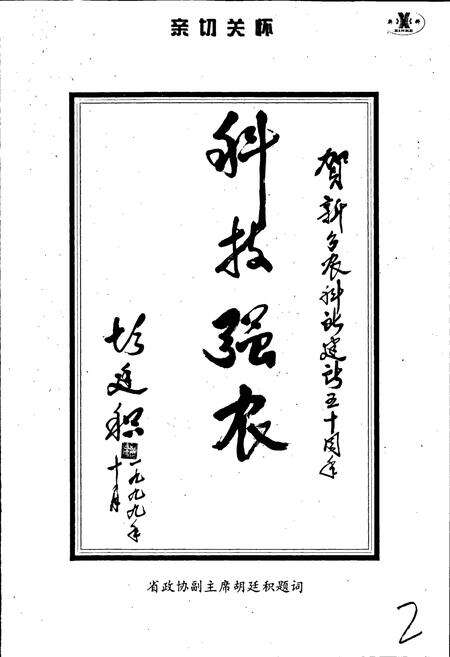 亲切关怀
新科
XINKE
贺新乡农科所建所五十周年
科技强农
胡廷积
一九九九年
十月
省政协副主席胡廷积题词
2